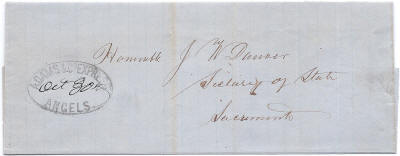 ADAMS & CO'S EXPRESS
Oct 30
ANGELS
Honorable J W Denver
Secretary of State
Sacramento